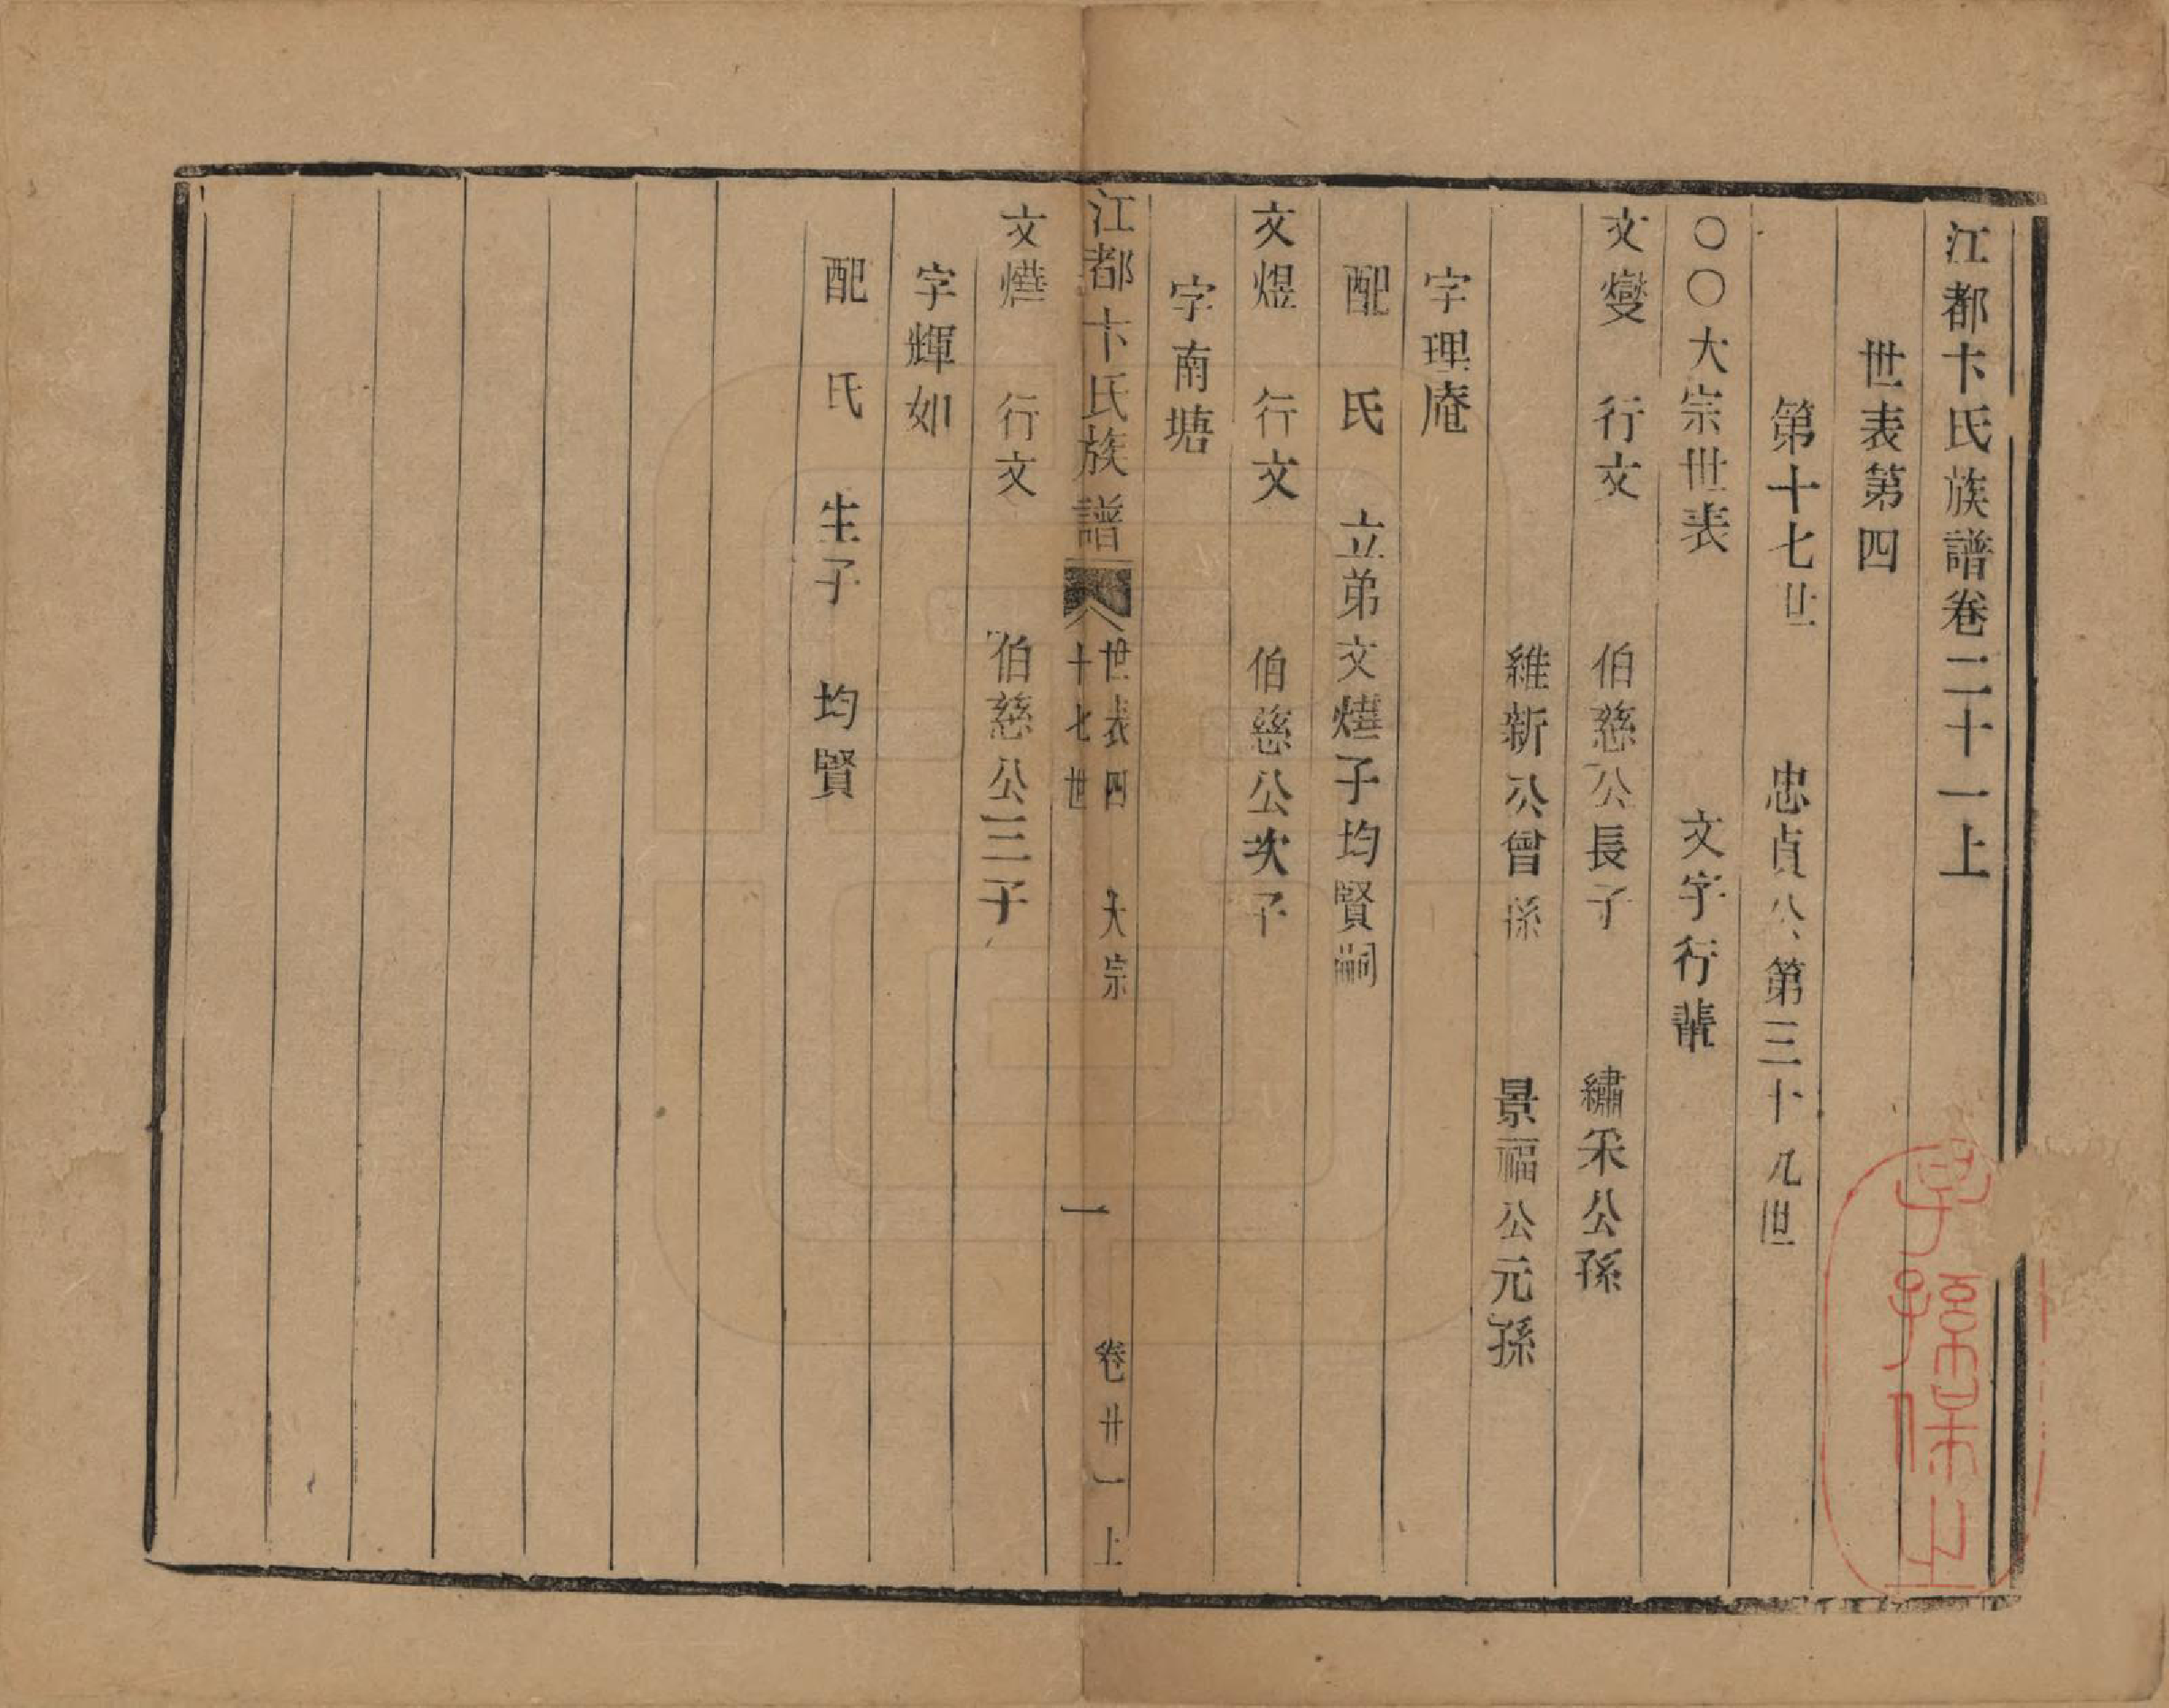 江都卞氏族譜卷二十一上
世表第四
第十七世　忠貞公第三十九世
〇〇大宗世表　文字行輩
文燮　行文　伯慈公長子　繡采公孫
維新公曾孫　景福公元孫
字理庵
配　氏　立弟文燁子均賢嗣
文煜　行文　伯慈公次子
字南塘
江都卞氏族譜　世表四　大宗　十七世　一　卷廿一上
文燁　行文　伯慈公三子
字輝如
配　氏　生子　均賢
子子孫孫保之